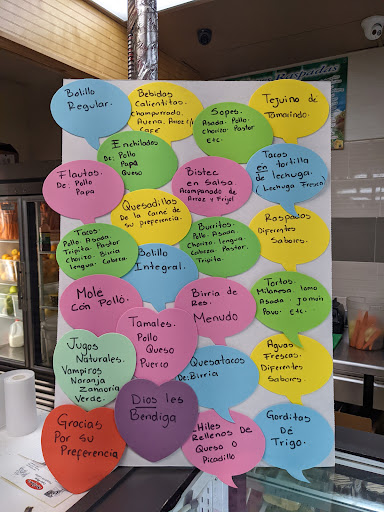 Raspados
Bolillo
Regular.
Bebidas
Calientitas.
Champurrado.
Avena. Arroz c/l
Café
Sopes.
Asada. Pollo.
Chorizo. Pastor
Etc.
Tejuino de
Tamarindo.
Enchiladas
De: Pollo
Papa
Queso
Flautas.
De: Pollo
Papa
Bistec
en Salsa.
Acompañado de
Arroz y Frijol
Tacos
en tortilla
de lechuga.
(Lechuga Fresca)
Quesadillas
De la carne de
su preferencia.
Tacos
Pollo. Asada
Tripita. Pastor
Chorizo. Birria
lengua. Cabeza.
Burritos.
Pollo. Asada
Chorizo. lengua.
Cabeza. Pastor.
Tripita.
Raspados
Diferentes
Sabores.
Bolillo
Integral.
Mole
Con Pollo.
Birria de
Res.
Menudo
Tortas.
Milanesa lomo
Asada. jamón
Pavo. Etc..
Tamales.
Pollo
Queso
Puerco
Jugos
Naturales.
Vampiros
Naranja
Zanaoria
Verde.
Quesatacos
De: Birria
Aguas
Frescas.
Diferentes
Sabores.
Dios les
Bendiga
Gracias
Por su
Preferencia
Chiles
Rellenos De
Queso o
Picadillo
Gorditas
De
Trigo.